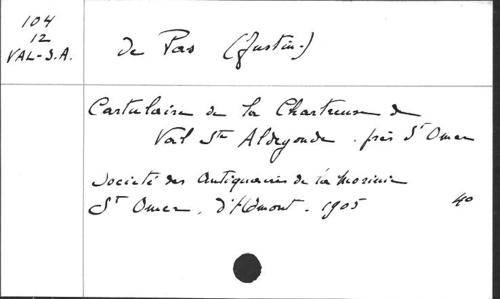 104
12
VAL-S.A.
de Pas (Justin.)
Cartulaire de la Chartreuse de
Val Ste Aldegonde. près St Omer
Société des Antiquaires de la Morinie
St Omer. d'Homont. 1905 4o